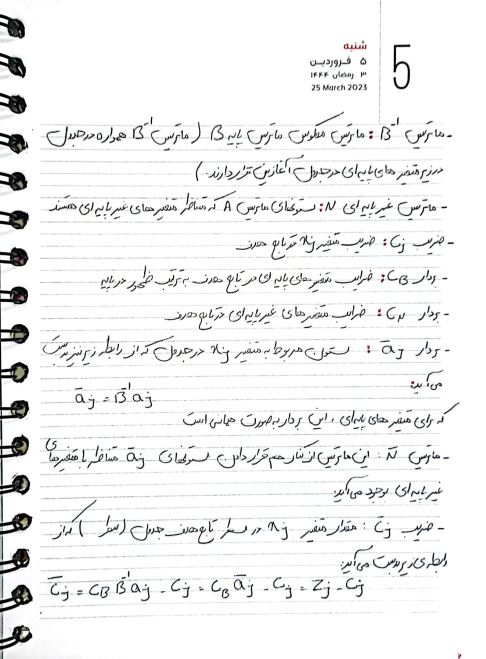 شنبه
۵ فروردین
۳ رمضان ۱۴۴۴
25 March 2023
5
- ماتریس B⁻¹ : ماتریس معکوس ماتریس پایه B ( ماتریس B⁻¹ همواره در جدول
در زیر متغیر های پایه ای در جدول آغازین قرار دارند. )
- ماتریس غیر پایه ای N : ستونهای ماتریس A که متناظر متغیر های غیر پایه ای هستند
- ضریب Cj : ضریب متغیر xj در تابع هدف
- بردار CB : ضرایب متغیر های پایه ای در تابع هدف به ترتیب ظهور در پایه
- بردار CN : ضرایب متغیر های غیر پایه ای در تابع هدف
- بردار āj : ستون مربوط به متغیر xj در جدول که از رابطه زیر نیز بدست
می آید:
āj = B⁻¹aj
که برای متغیر های پایه ای ، این بردار به صورت همانی است
- ماتریس N̄ : این ماتریس از کنار هم قرار دادن ستونهای āj متناظر با متغیرهای
غیر پایه ای بوجود می آید:
- ضریب C̄j : مقدار متغیر xj در سطر تابع هدف جدول (سطر ) که از
رابطه ی زیر بدست می آید:
C̄j = CB B⁻¹aj - Cj = CB āj - Cj = Zj - Cj